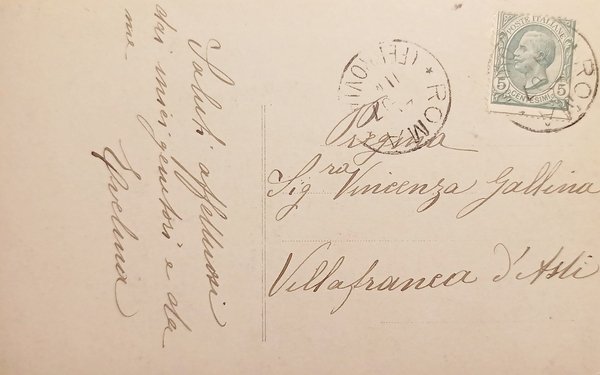 Saluti affettuosi
dai miei genitori e da
me
Evelina
POSTE ITALIANE
5 CENTESIMI 5
ROMA
ROMA
(FERROVIA)
Pregma
Sig ra Vincenza Gallina
Villafranca d'Asti